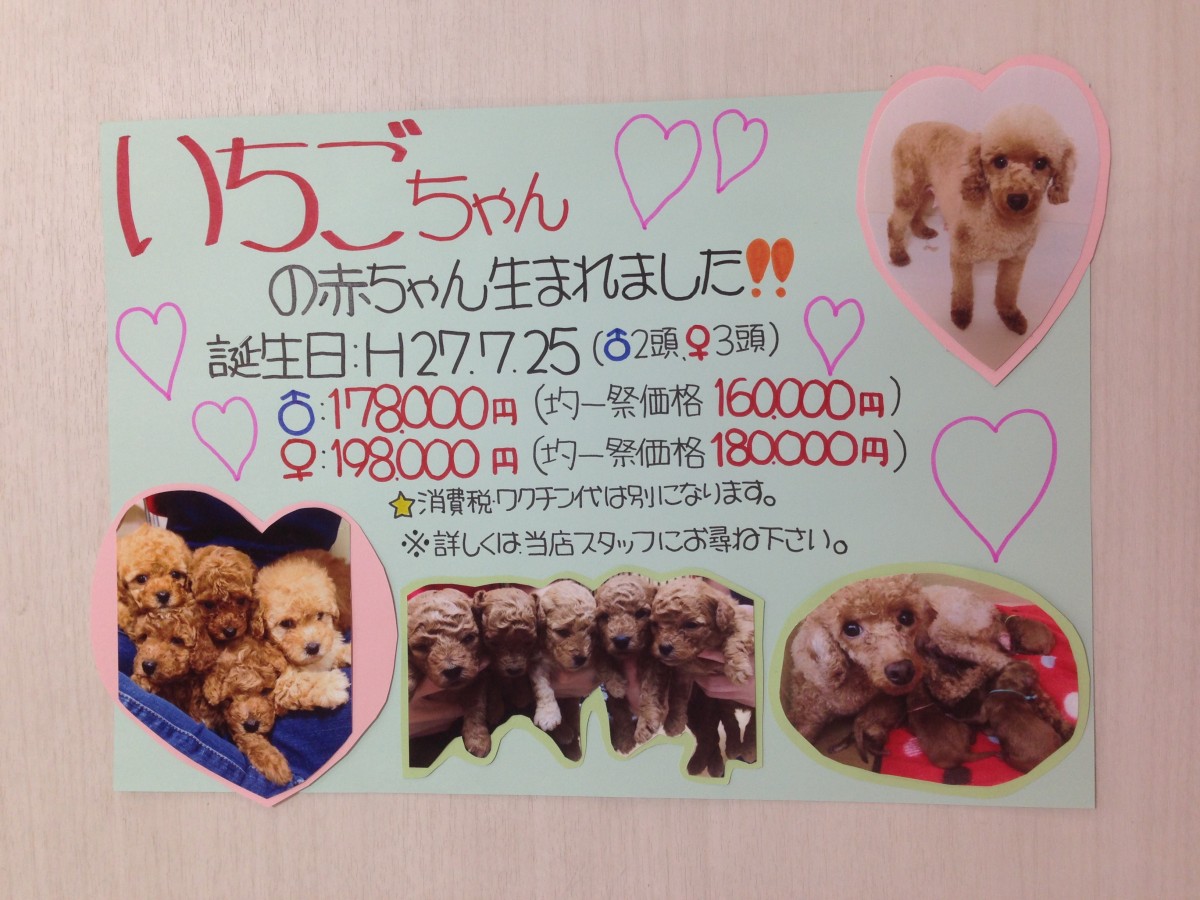 いちごちゃん
の赤ちゃん生まれました!!
誕生日:H27.7.25(♂2頭、♀3頭)
♂:178.000円(均一祭価格160.000円)
♀:198.000円(均一祭価格180.000円)
★消費税・ワクチン代は別になります。
※詳しくは、当店スタッフにお尋ね下さい。